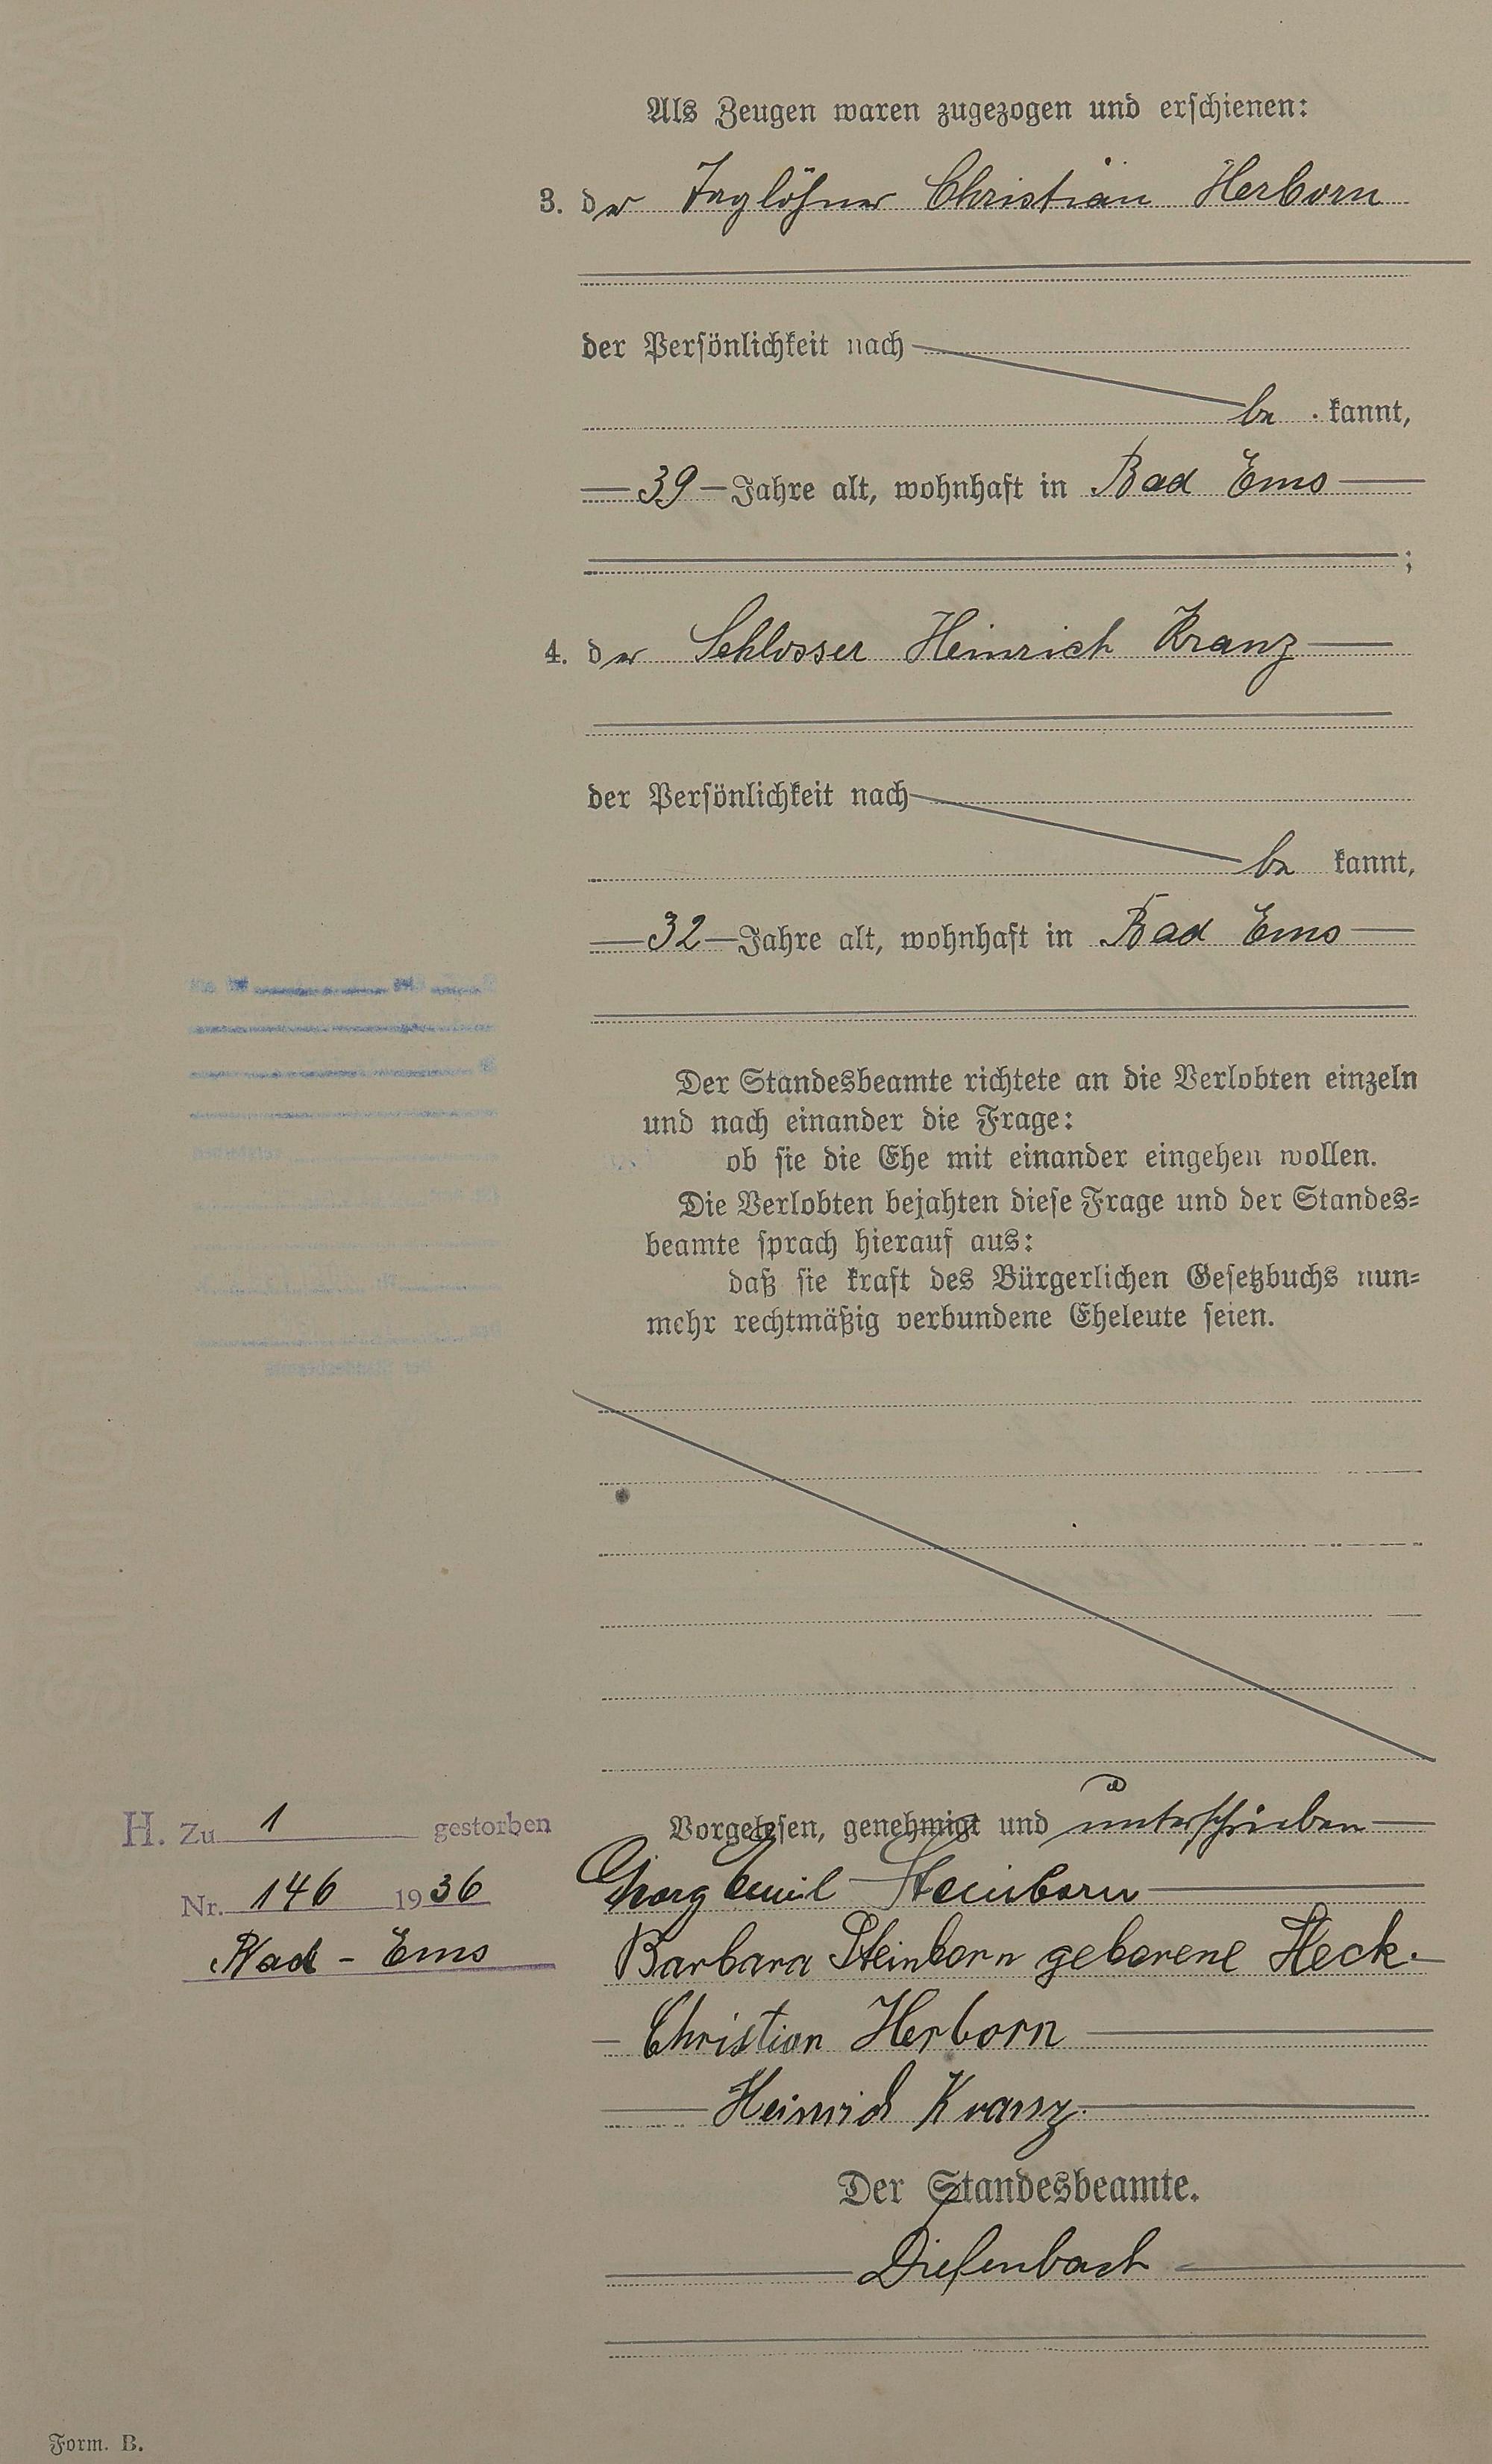 Als Zeugen waren zugezogen und erschienen:
3. der Taglöhner Christian Herborn
der Persönlichkeit nach
be kannt,
39 Jahre alt, wohnhaft in Bad Ems
;
4. der Schlosser Heinrich Kranz
der Persönlichkeit nach
be kannt,
32 Jahre alt, wohnhaft in Bad Ems
Der Standesbeamte richtete an die Verlobten einzeln
und nach einander die Frage:
ob sie die Ehe mit einander eingehen wollen.
Die Verlobten bejahten diese Frage und der Standes-
beamte sprach hierauf aus:
daß sie kraft des Bürgerlichen Gesetzbuchs nun-
mehr rechtmäßig verbundene Eheleute seien.
Vorgelesen, genehmigt und unterschrieben
Georg Emil Steinborn
Barbara Steinborn geborene Heck.
Christian Herborn
Heinrich Kranz
Der Standesbeamte.
Diefenbach
H. Zu 1 gestorben
Nr. 146 1936
Bad - Ems
Form. B.